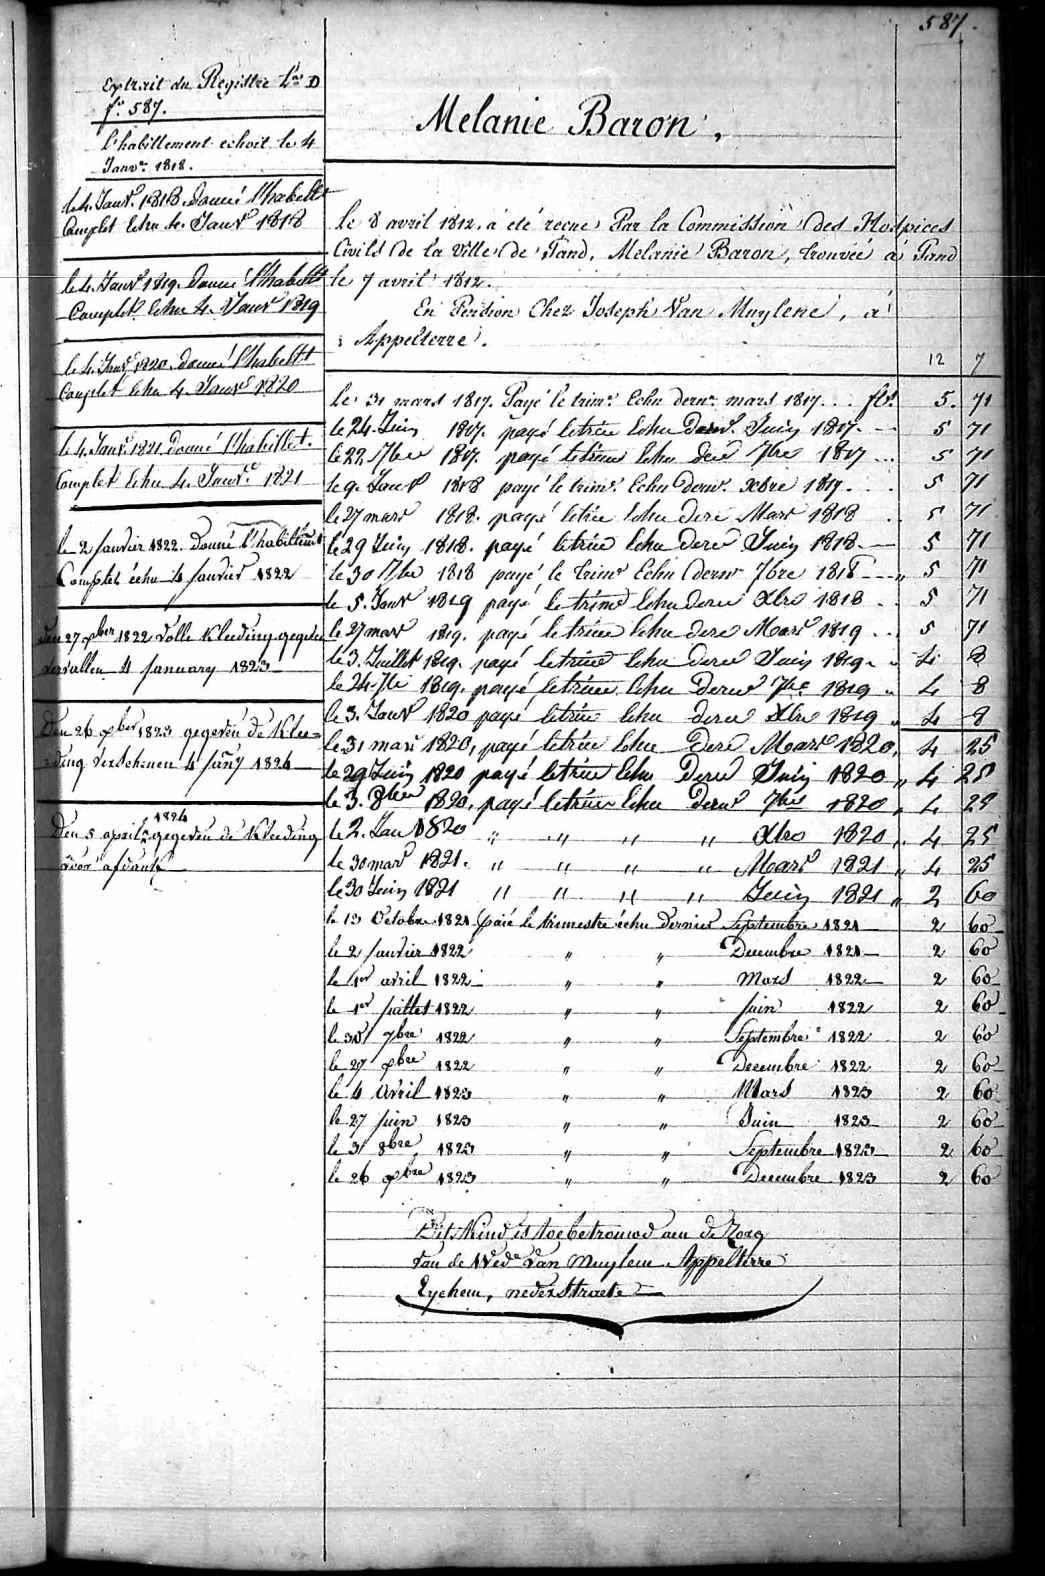 587.
Extrait du Registre Lra D
fo. 587.
l'habillement echoit le 4
Janvr. 1818.
le 4. Janvr. 1818. donné l'habelt
Complet Echu 4. Janvr 1818
le 4. Janvr 1819. donné l'habelt
Complet Echu 4. Janvr 1819
le 4. Janvr 1820. donné l'habellt
Complet Echu 4 Janvr 1820
le 4. Janvr. 1821. donné l'habillet.
Complet Echu 4. Janvr. 1821
le 2 janvier 1822. donné l'habillemt
Complet échu 4 janvier 1822
den 27 xber 1822 volle kleeding gegeven
vervallen 4 january 1823
Den 26 xber 1823 gegeven de klee=
=ding verschenen 4 january 1824
1824
Den 5 april gegeven de kleeding
voor
Melanie Baron,
le 8 avril 1812. à été reçue Par la Commission des Hospices
Civils de la Ville de Gand, Melanie Baron, trouvée à Gand
le 7 avril 1812.
En Pension Chez Joseph Van Muylene, à
Appelterre.
12 7
le 31 mars 1817. Payé le trimr. Echu dernr. mars 1817 ... fls. 5. 71
le 24 Juin 1817. payé le trim Echu dernr. Juin 1817. - - 5 71
le 22 7bre 1817. payé le trim Echu der 7bre 1817 ... 5 71
le 9. Janvr 1818 payé le trimr. Echu dernr. xbre 1817. . . 5 71
le 27 mars 1818. payé le trim Echu der Mars 1818 . 5 71
le 29 Juin 1818. payé le trim Echu der Juin 1818. — 5 71
le 30 7bre 1818 payé le trimr Echu dernr 7bre 1818 - - „ 5 71
le 5. Janvr 1819 payé le trim Echu der Xbre 1818 . . 5 71
le 27 mars 1819. payé le trim Echu der Mars 1819 . . 5 71
le 3. Juillet 1819. payé le trim Echu der Juin 1819. „ 4 8
le 24 7bre 1819. payé le trim Echu dernr 7bre 1819 „ 4 8
le 3. Janvr 1820 payé le trim Echu der Xbre 1819 „ 4 8
le 31 mars 1820, payé le trim Echu der Mars 1820 „ 4 25
le 29 Juin 1820 payé le trim Echu der Juin 1820 „ 4 25
le 3. 8bre 1820, payé le trim Echu dernr 7bre 1820 „ 4 25
le 2. Jan 1820 „ „ „ „ Xbre 1820 „ 4 25
le 30 mars 1821. „ „ „ „ Mars 1821 „ 4 25
le 30 Juin 1821 „ „ „ „ Juin 1821 „ 2 60
le 13 Octobre 1821 païé le trimestre échu dernier Septembre 1821 2 60
le 2 janvier 1822 „ „ Decembre 1821 2 60
le 1er avril 1822 „ „ Mars 1822 2 60
le 1er juillet 1822 „ „ juin 1822 2 60
le 30 7bre 1822 „ „ Septembre 1822 2 60
le 27 xbre 1822 „ „ Decembre 1822 2 60
le 4 Avril 1823 „ „ Mars 1823 2 60
le 27 juin 1823 „ „ Juin 1823 2 60
le 3 8bre 1823 „ „ Septembre 1823 2 60
le 26 xbre 1823 „ „ Decembre 1823 2 60
Dit kind is toebetrouwd aen de zorg
van de Wede Van Muylem Appelterre
Eychem, nederstraete